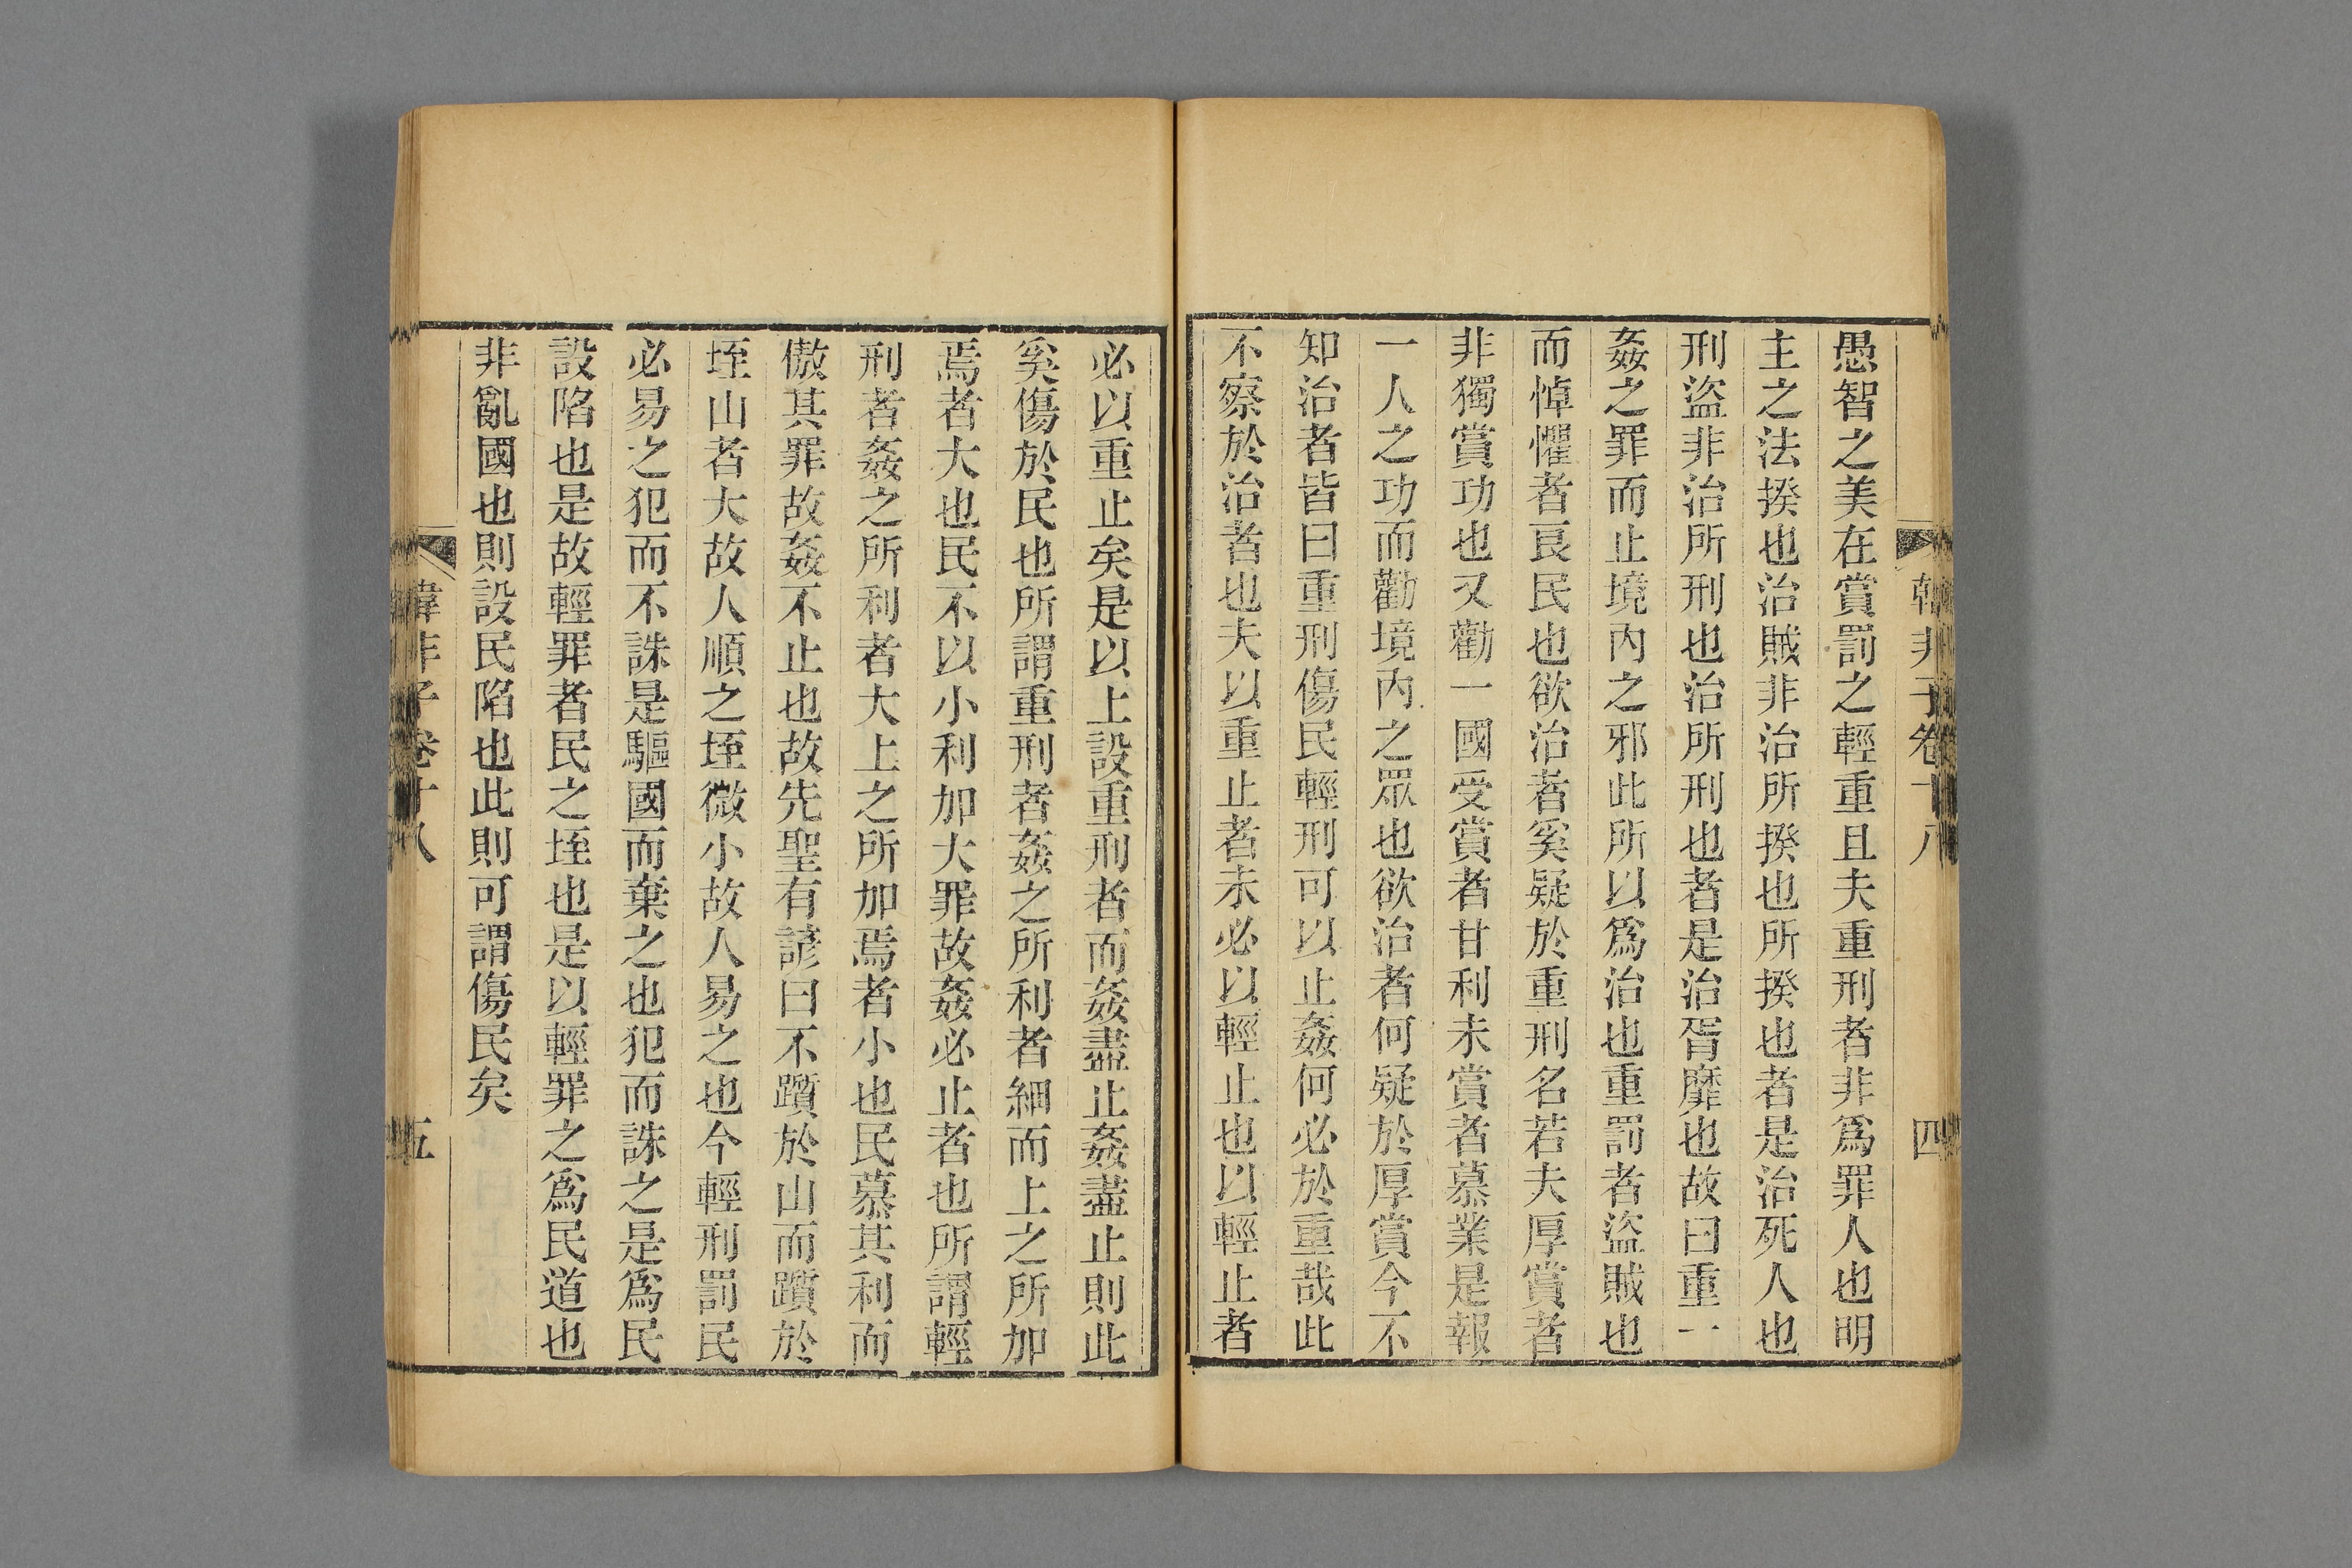 韓非子卷十八
四
愚智之美在賞罰之輕重且夫重刑者非爲罪人也明
主之法揆也治賊非治所揆也所揆也者是治死人也
刑盜非治所刑也治所刑也者是治胥靡也故曰重一
姦之罪而止境內之邪此所以爲治也重罰者盜賊也
而悼懼者良民也欲治者奚疑於重刑名若夫厚賞者
非獨賞功也又勸一國受賞者甘利未賞者慕業是報
一人之功而勸境內之眾也欲治者何疑於厚賞今不
知治者皆曰重刑傷民輕刑可以止姦何必於重哉此
不察於治者也夫以重止者未必以輕止也以輕止者
必以重止矣是以上設重刑者而姦盡止姦盡止則此
奚傷於民也所謂重刑者姦之所利者細而上之所加
焉者大也民不以小利加大罪故姦必止者也所謂輕
刑者姦之所利者大上之所加焉者小也民慕其利而
傲其罪故姦不止也故先聖有諺曰不躓於山而躓於
垤山者大故人順之垤微小故人易之也今輕刑罰民
必易之犯而不誅是驅國而棄之也犯而誅之是爲民
設陷也是故輕罪者民之垤也是以輕罪之爲民道也
非亂國也則設民陷也此則可謂傷民矣
韓非子卷十八
五